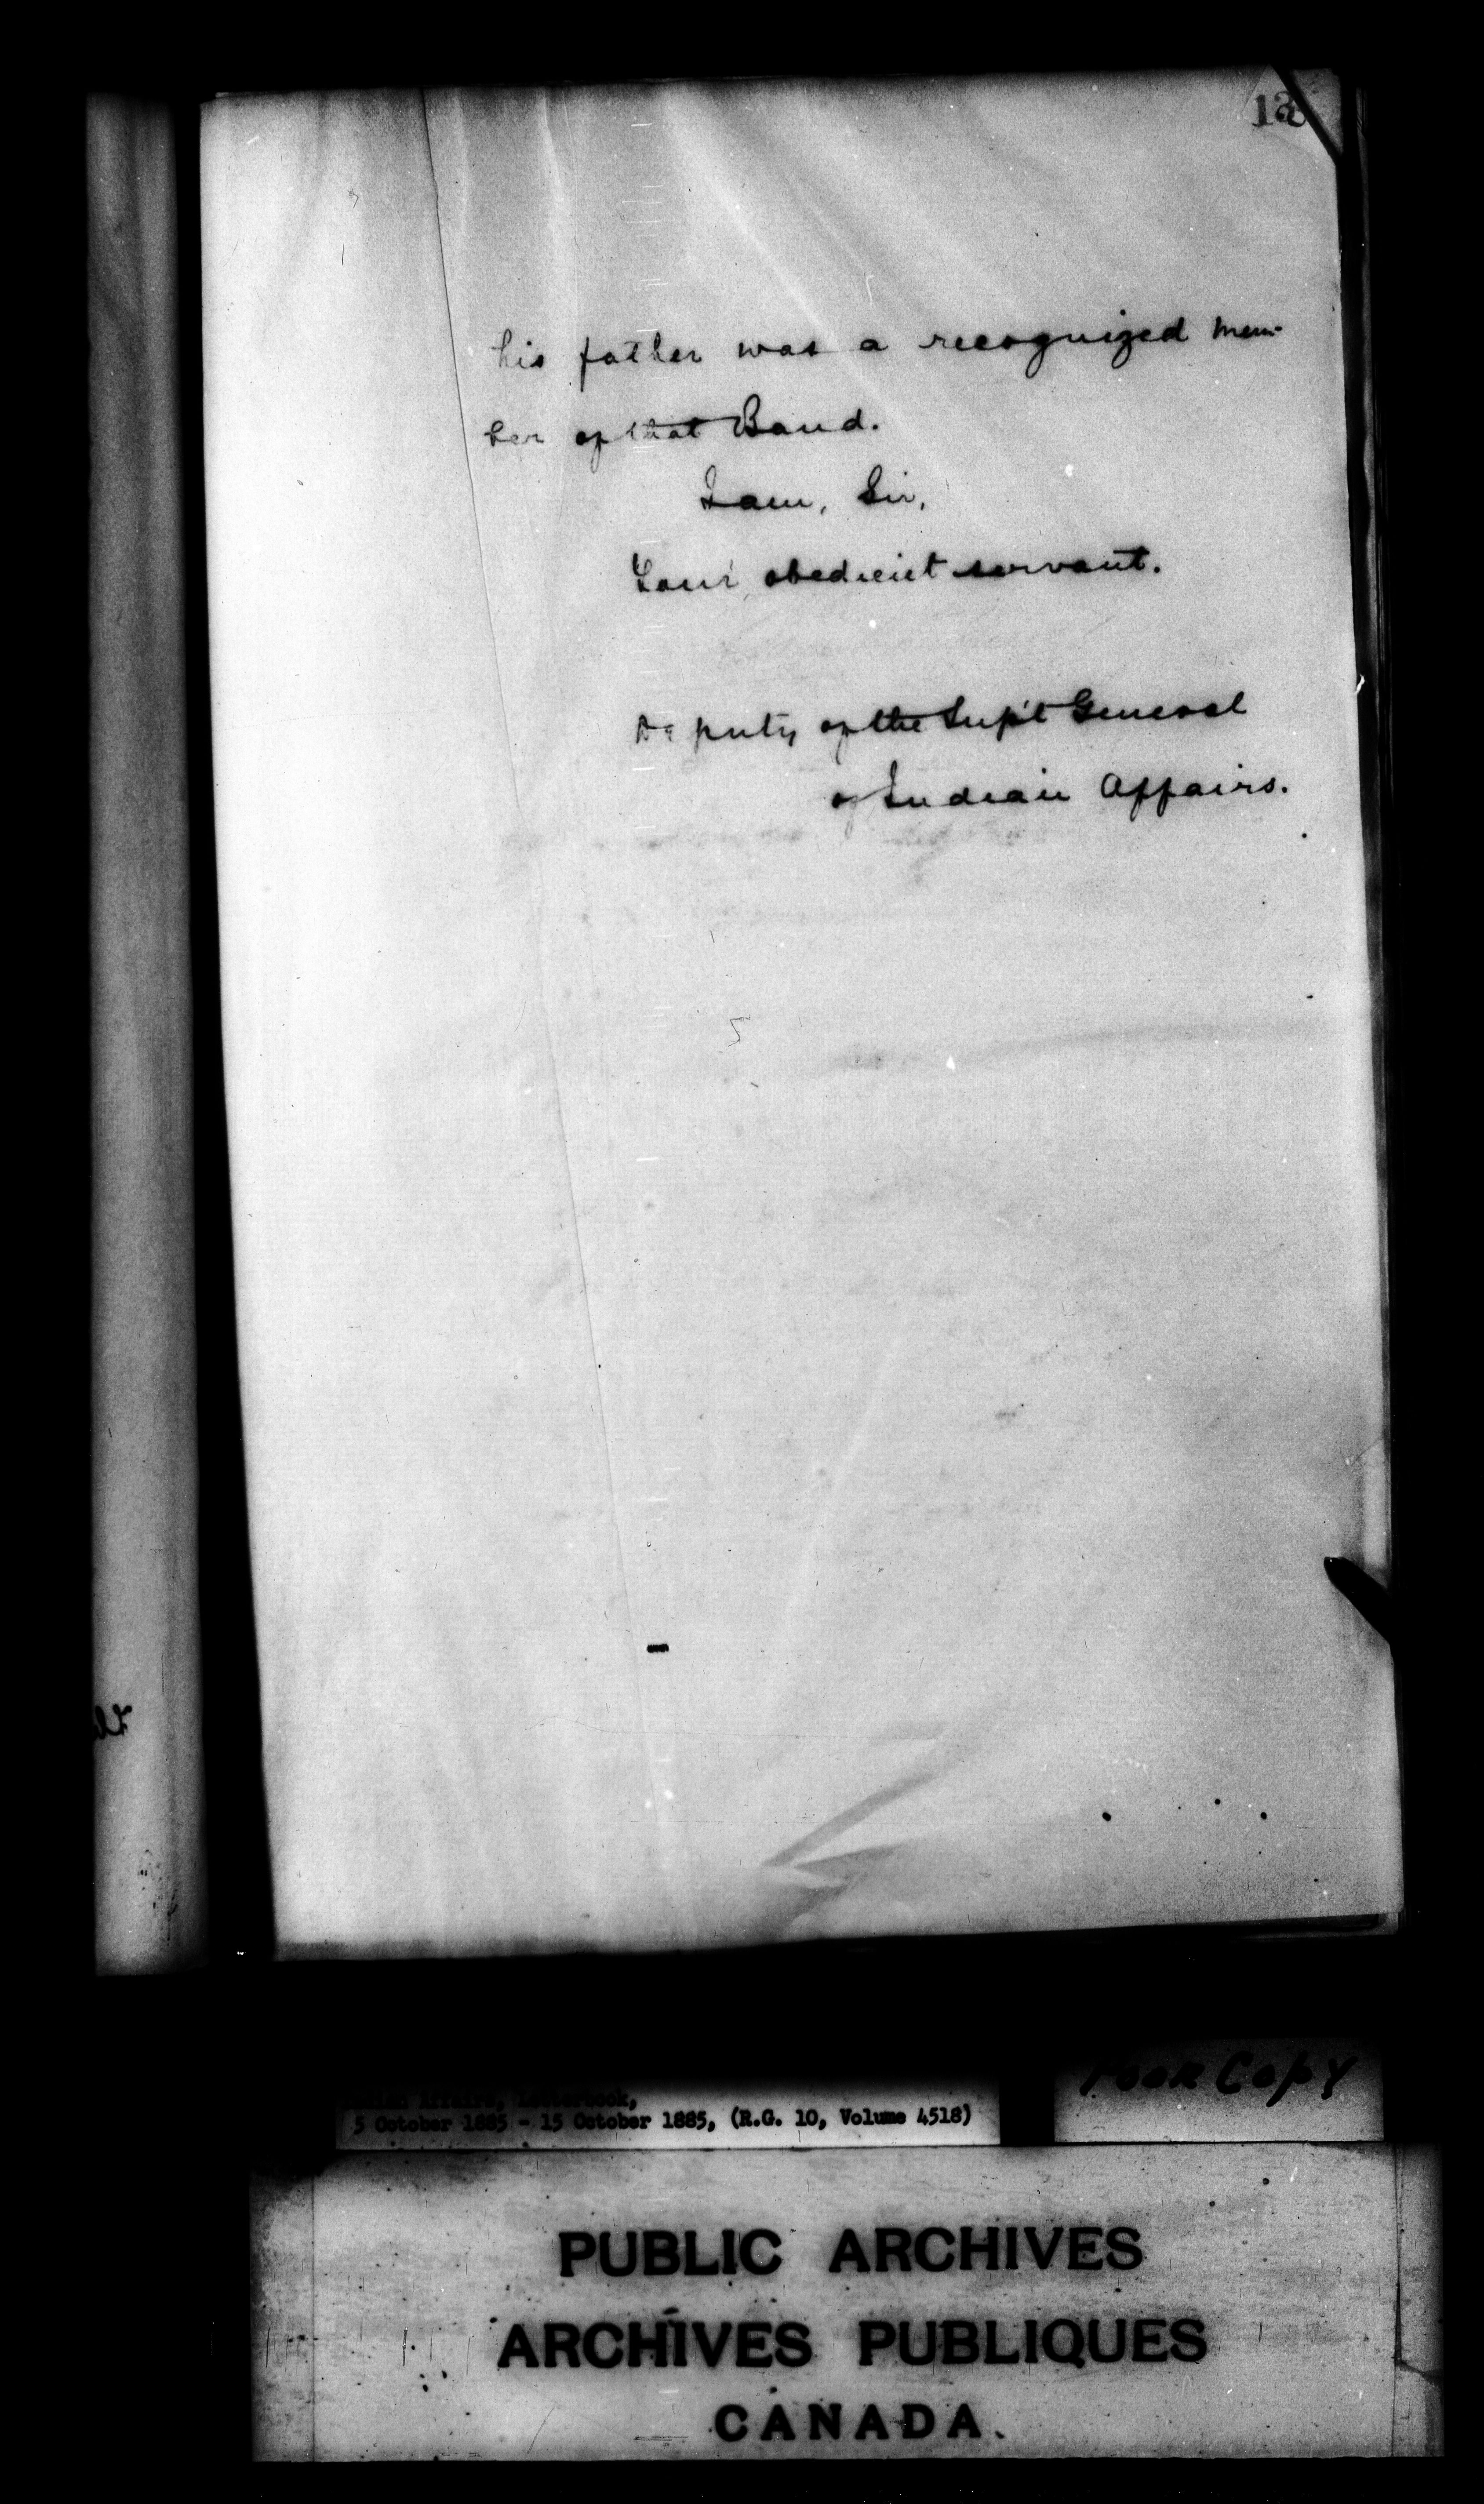 his father was a recognized mem-
ber of that Band.
I am, Sir,
Your obedient servant.
Deputy of the Sup't General
of Indian Affairs.
Poor Copy
Indian Affairs, Letterbook,
5 October 1885 - 15 October 1885, (R.G. 10, Volume 4518)
PUBLIC ARCHIVES
ARCHIVES PUBLIQUES
CANADA